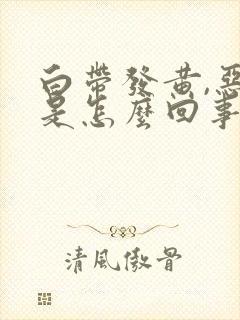 白帶發黃,惡
是怎麼回事
清風傲骨